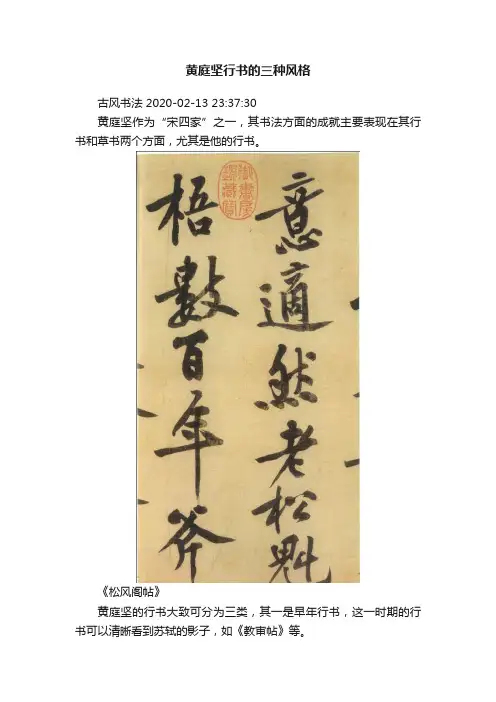 黄庭坚行书的三种风格
古风书法 2020-02-13 23:37:30
黄庭坚作为“宋四家”之一，其书法方面的成就主要表现在其行
书和草书两个方面，尤其是他的行书。
意適然老松魁
梧數百年斧
《松风阁帖》
黄庭坚的行书大致可分为三类，其一是早年行书，这一时期的行
书可以清晰看到苏轼的影子，如《教审帖》等。